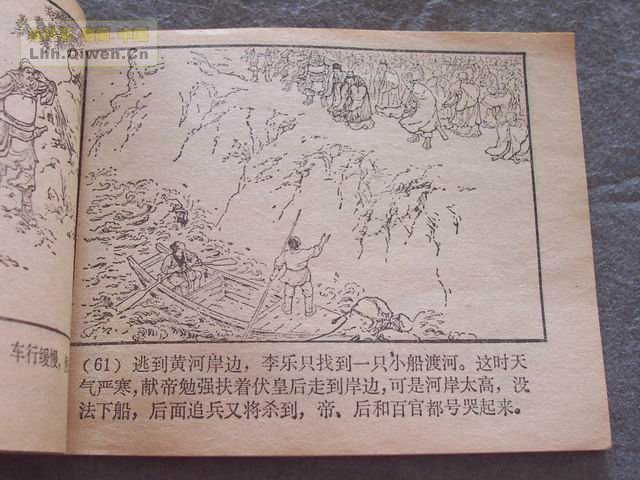 Lhh.Qiwen.Cn
车行缓慢,
(61) 逃到黄河岸边，李乐只找到一只小船渡河。这时天
气严寒，献帝勉强扶着伏皇后走到岸边，可是河岸太高，没
法下船，后面追兵又将杀到，帝、后和百官都号哭起来。